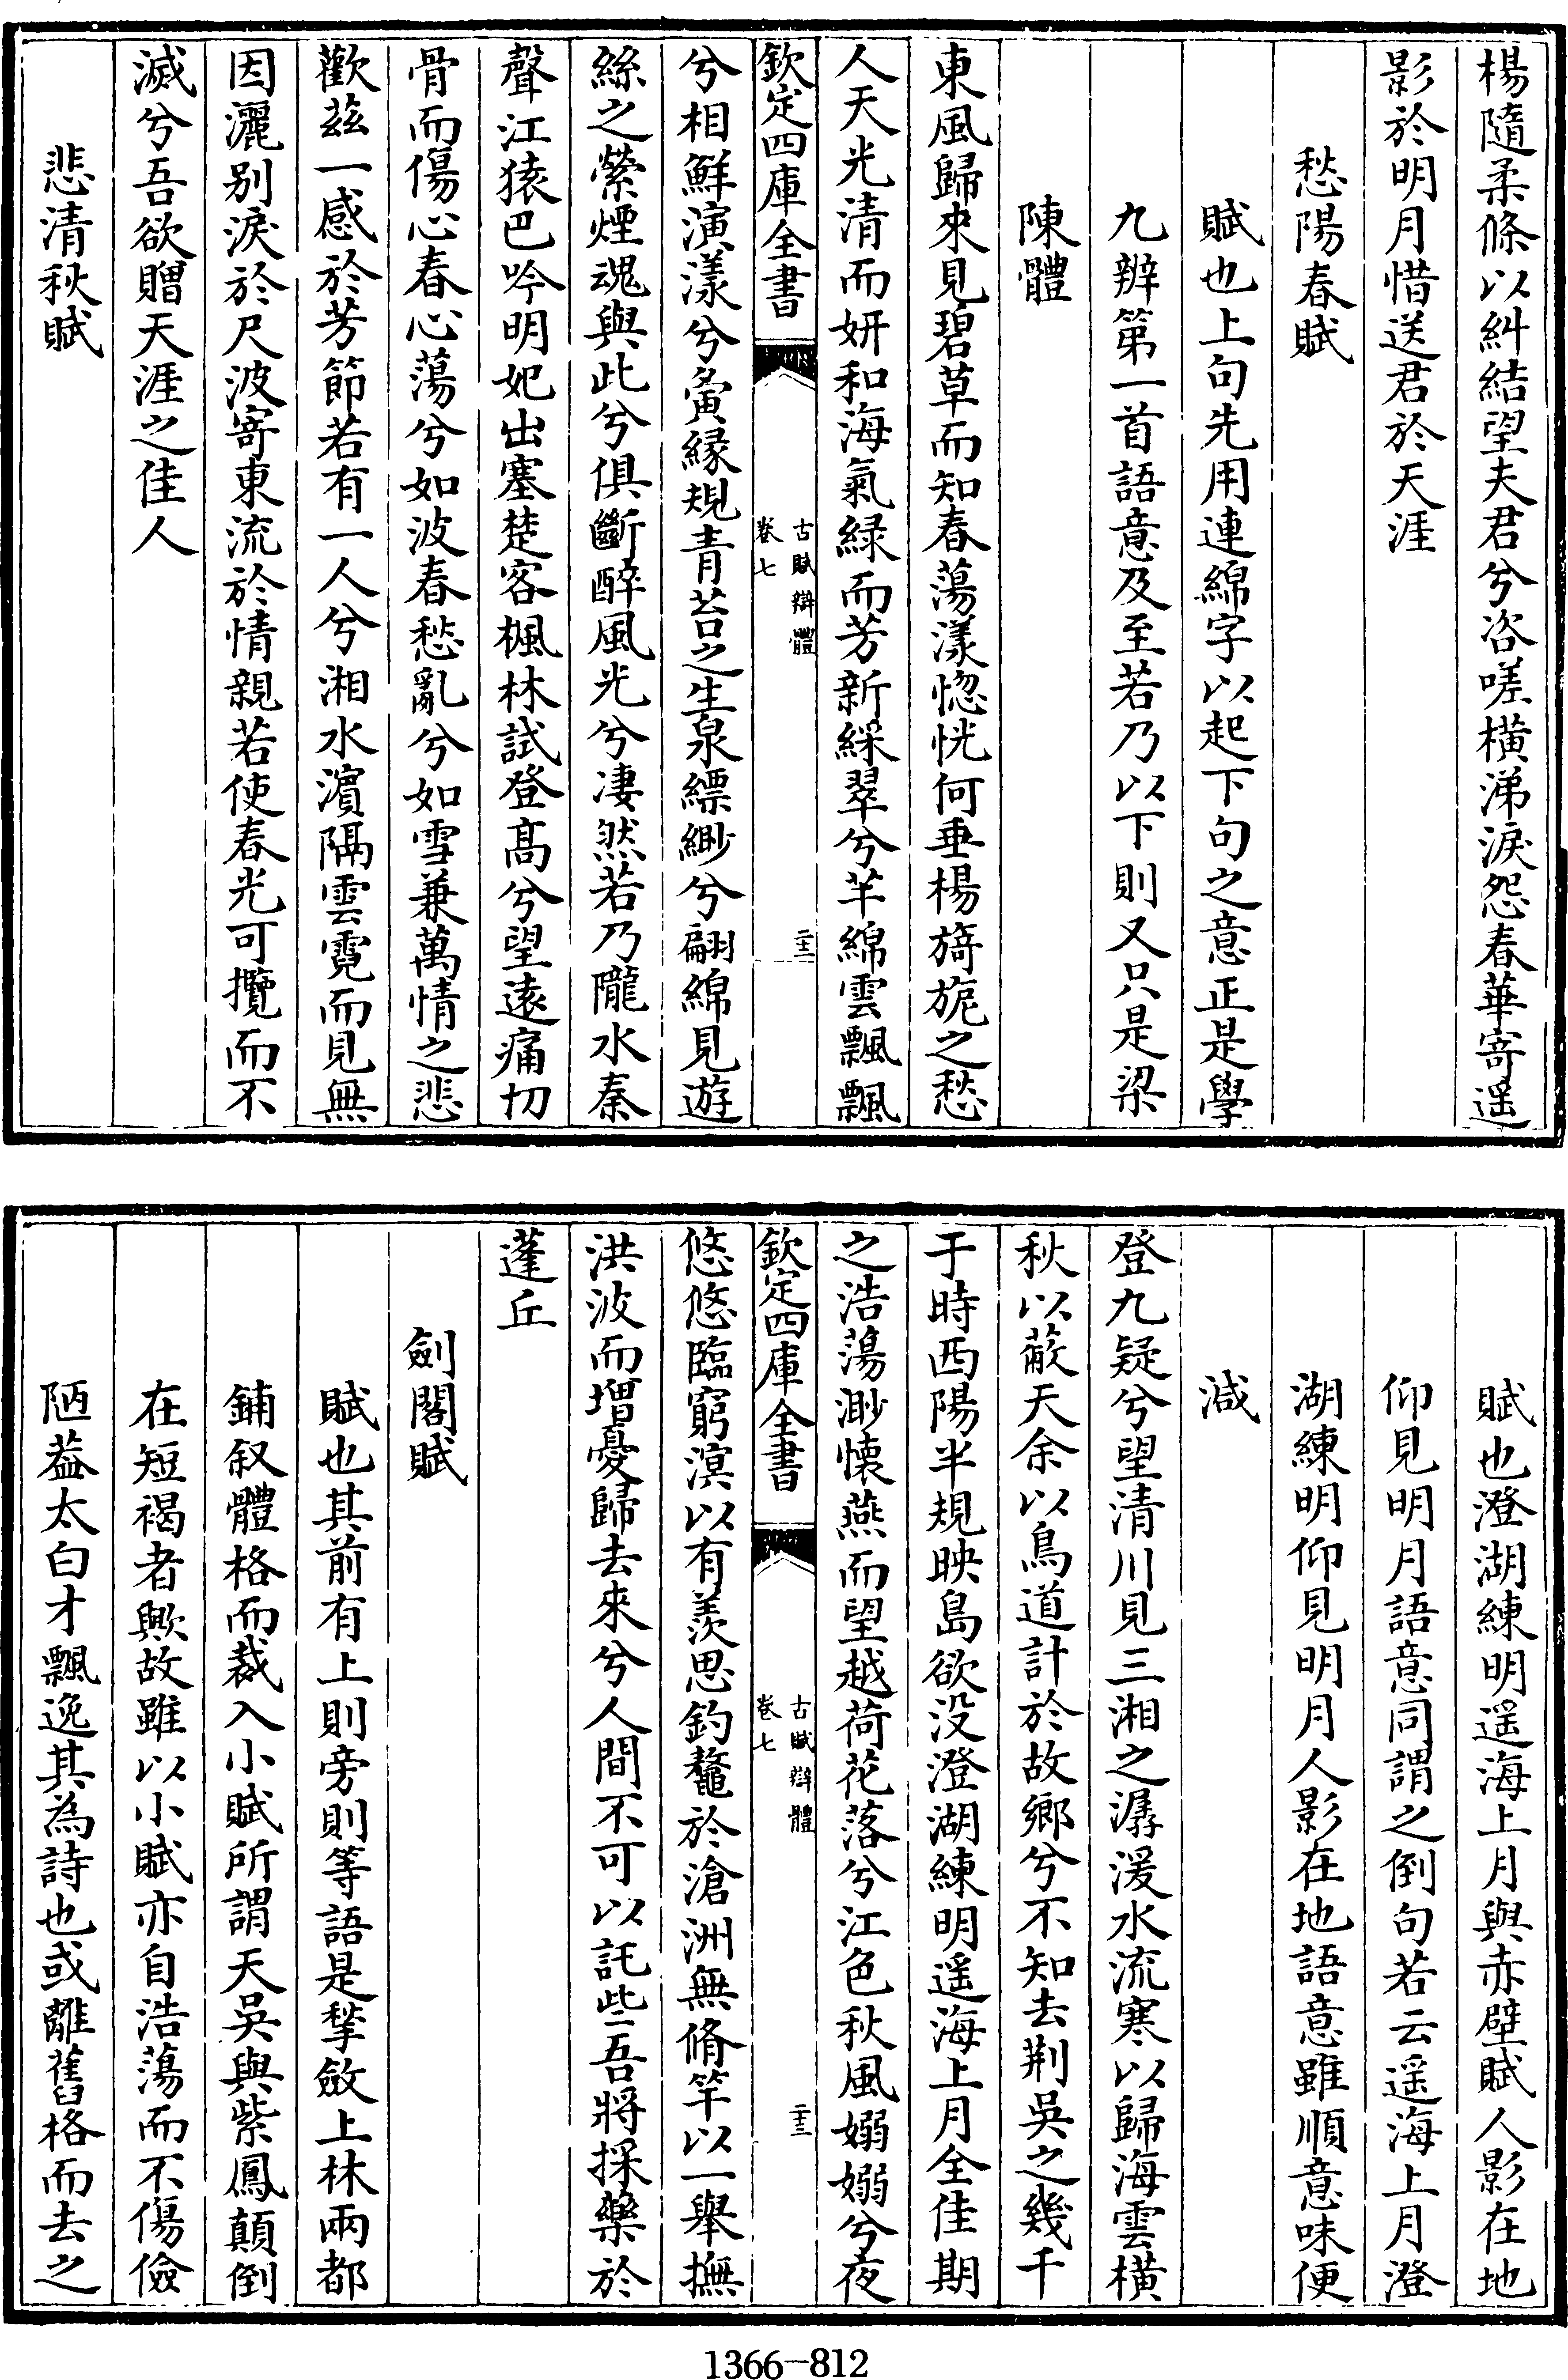 楊隨柔條以糾結望夫君兮咨嗟橫涕淚怨春華寄遥
影於明月惜送君於天涯
愁陽春賦
賦也上句先用連綿字以起下句之意正是學
九辨第一首語意及至若乃以下則又只是梁
陳體
東風歸來見碧草而知春蕩漾惚恍何垂楊旖旎之愁
人天光清而妍和海氣緑而芳新綵翠兮芊綿雲飄飄
欽定四庫全書
古賦辯體
卷七
二十二
兮相鮮演漾兮夤縁規青苔之生泉縹緲兮翩綿見遊
絲之縈煙魂與此兮俱斷醉風光兮凄然若乃隴水秦
聲江猿巴吟明妃出塞楚客楓林試登髙兮望逺痛切
骨而傷心春心蕩兮如波春愁亂兮如雪兼萬情之悲
歡茲一感於芳節若有一人兮湘水濵隔雲霓而見無
因灑别淚於尺波寄東流於情親若使春光可攬而不
滅兮吾欲贈天涯之佳人
悲清秋賦
賦也澄湖練明遥海上月與赤壁賦人影在地
仰見明月語意同謂之倒句若云遥海上月澄
湖練明仰見明月人影在地語意雖順意味便
減
登九疑兮望清川見三湘之潺湲水流寒以歸海雲橫
秋以蔽天余以鳥道計於故鄉兮不知去荆吳之幾千
于時西陽半規映島欲没澄湖練明遥海上月全佳期
之浩蕩渺懐燕而望越荷花落兮江色秋風嫋嫋兮夜
欽定四庫全書
古賦辯體
卷七
二十三
悠悠臨窮溟以有羨思釣鼇於滄洲無脩竿以一舉撫
洪波而增憂歸去來兮人間不可以託些吾將採藥於
蓬丘
劍閣賦
賦也其前有上則旁則等語是揫斂上林兩都
鋪叙體格而裁入小賦所謂天吳與紫鳳顛倒
在短褐者歟故雖以小賦亦自浩蕩而不傷儉
陋葢太白才飄逸其為詩也或離舊格而去之
1366-812